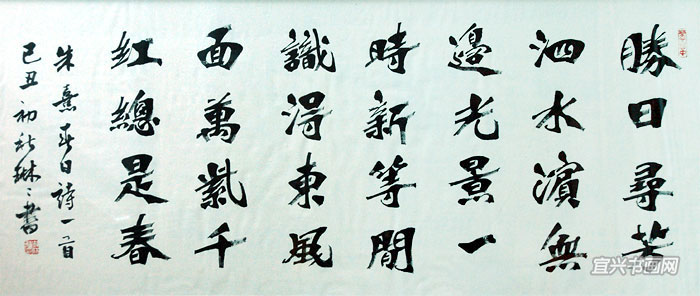 勝日尋芳
泗水濱無
邊光景一
時新等閒
識得東風
面萬紫千
紅總是春
朱熹春日詩一首
己丑初秋琳〻書
宜兴书画网